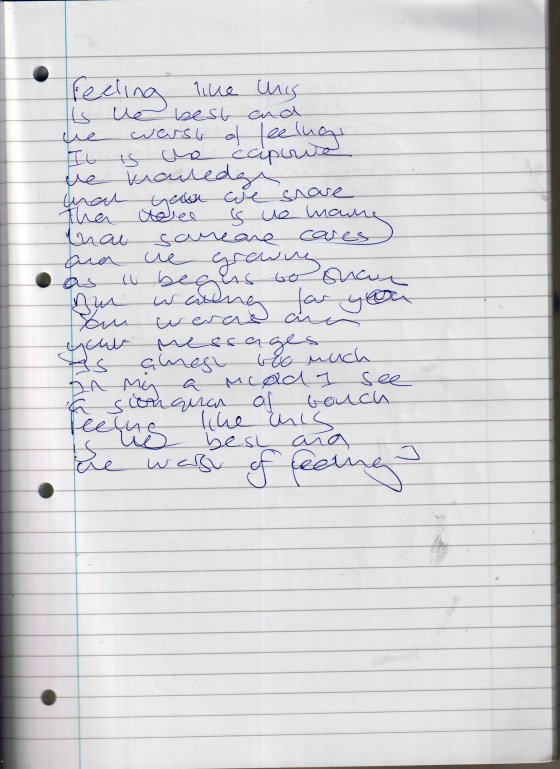 Feeling like this
is the best and
the worst of feelings
It is the
the knowledge
that you are
that there is the
that someone cares
and the growing
as it begins to
waiting for you
Your words and
your messages
Is almost too much
In my a mind I see
a of touch
Feeling like this
is the best and
the worst of feelings